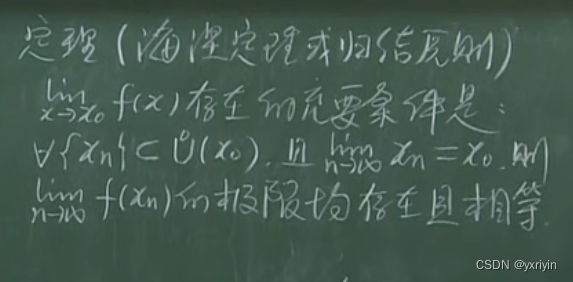 定理(海涅定理或归结原则)
lim x→x₀ f(x)存在的充要条件是:
∀{xₙ}⊂Ů(x₀).且 lim n→∞ xₙ=x₀.则
lim n→∞ f(xₙ)的极限均存在且相等.
CSDN @yxriyin